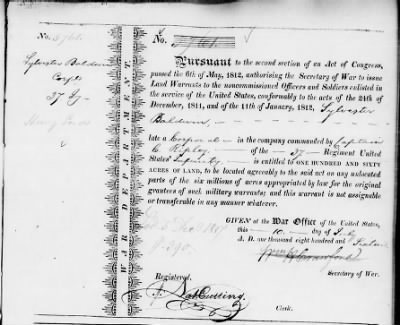 No. 5761.
Sylvester Baldwin
Corp
37
WAR DEPARTMENT.
No. 5761.
Pursuant to the second section of an Act of Congress,
passed the 6th of May, 1812, authorising the Secretary of War to issue
Land Warrants to the noncommissioned Officers and Soldiers enlisted in
the service of the United States, conformably to the acts of the 24th of
December, 1811, and of the 11th of January, 1812, Sylvester
Baldwin,
late a Corporal in the company commanded by Captain
C Ripley of the 37 Regiment United
States' Infantry is entitled to ONE HUNDRED AND SIXTY
ACRES OF LAND, to be located agreeably to the said act on any unlocated
parts of the six millions of acres appropriated by law for the original
grantees of such military warrants; and this warrant is not assignable
or transferable in any manner whatever.
GIVEN at the War Office of the United States,
this 10 day of July
A. D. one thousand eight hundred and
Wm H Crawford
Secretary of War.
Registered.
Nat Cutting
Clerk.